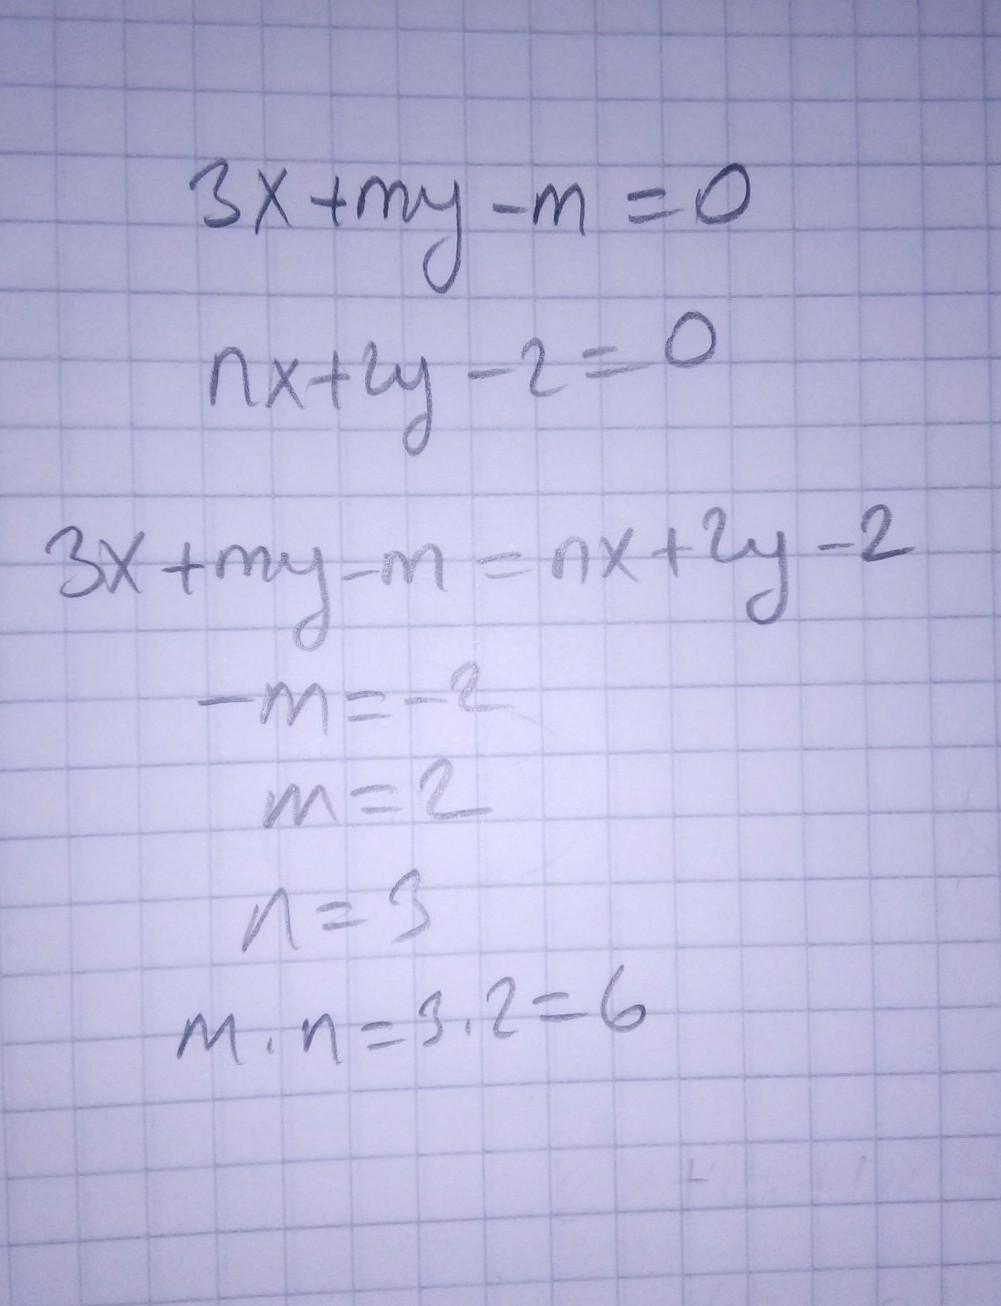 3x+my-m=0
nx+2y-2=0
3x+my-m=nx+2y-2
-m=-2
m=2
n=3
m.n=3.2=6